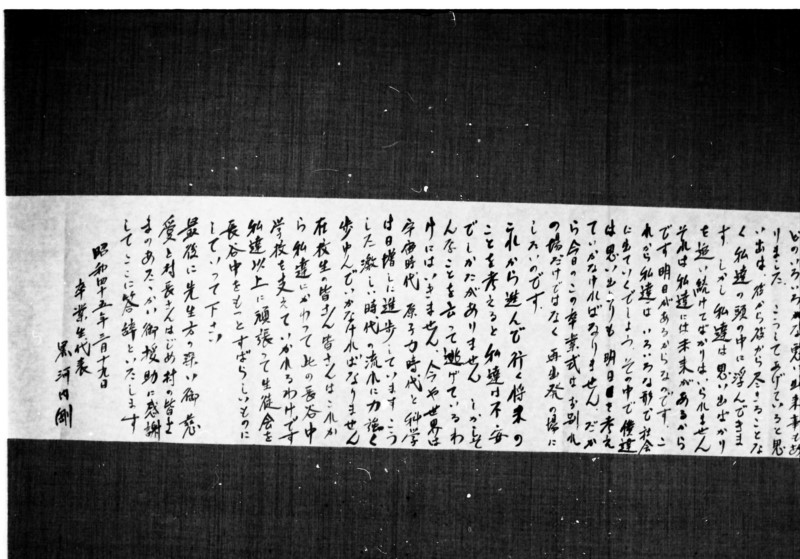 どのいろいろな思い出来事であ
りました こうしていると思
い出は、後から後から尽きることな
く私達の頭の中に浮んできま
す しかし 私達は思い出ばかり
を追い続けてばかりはいられません
それは私達には未来があるから
です 明日があるからなのです。こ
れから私達は いろいろな形で社会
に出ていくでしょう。その中で僕達
は思い出よりも明日を考え
ていかなければなりません だか
ら今日のこの卒業式はお別れ
の場だけではなく 再出発の場に
したいのです。
これから進んで行く将来の
ことを考えると私達は不安
でしかたがありません しかしそ
んなことを言って逃げているわ
けにはいきません 今や世界は
宇宙時代 原子力時代と科学
は日増しに進歩しています こう
した激しい時代の流れに力強く
歩せんでいかなければなりません
在校生の皆さん 皆さんはこれか
ら私達にかわって此の長谷中
学校を支えていかれるわけです
私達以上に頑張って生徒会を
長谷中をもっとすばらしいものに
していって下さい
最後に先生方の深い御慈
愛と村長さんはじめ村の皆さ
まのあたたかい御援助に感謝
してここに答辞といたします
昭和四十五年三月十九日
卒業生代表
黒河内 剛